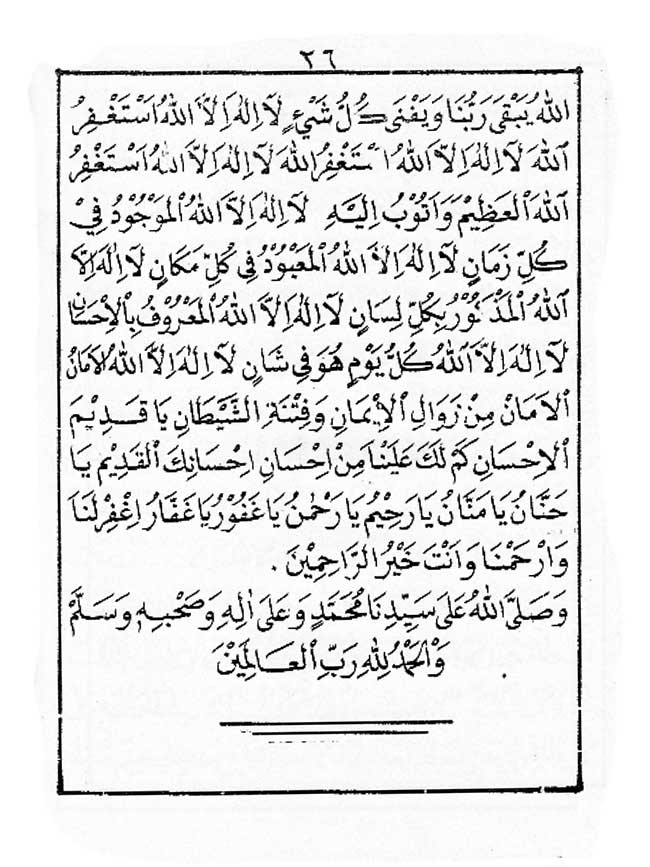 ٢٦
اللهُ يَبْقَى رَبُّنَا وَيَفْنَى كُلُّ شَيْءٍ لَآ اِلٰهَ اِلَّا اللهُ اَسْتَغْفِرُ
اللهَ لَآ اِلٰهَ اِلَّا اللهُ اَسْتَغْفِرُ اللهَ لَآ اِلٰهَ اِلَّا اللهُ اَسْتَغْفِرُ
اللهَ الْعَظِيْمَ وَاَتُوْبُ اِلَيْهِ لَآ اِلٰهَ اِلَّا اللهُ الْمَوْجُوْدُ فِيْ
كُلِّ زَمَانٍ لَآ اِلٰهَ اِلَّا اللهُ الْمَعْبُوْدُ فِي كُلِّ مَكَانٍ لَآ اِلٰهَ اِلَّا
اللهُ الْمَذْكُوْرُ بِكُلِّ لِسَانٍ لَآ اِلٰهَ اِلَّا اللهُ الْمَعْرُوْفُ بِالْاِحْسَانِ
لَآ اِلٰهَ اِلَّا اللهُ كُلُّ يَوْمٍ هُوَ فِي شَانٍ لَآ اِلٰهَ اِلَّا اللهُ الْاَمَانُ
الْاَمَانْ مِنْ زَوَالِ الْاِيْمَانِ وَفِتْنَةِ الشَّيْطَانِ يَا قَدِيْمَ
الْاِحْسَانِ كَمْ لَكَ عَلَيْنَا مِنْ اِحْسَانِ اِحْسَانِكَ الْقَدِيْمِ يَا
حَنَّانُ يَا مَنَّانُ يَا رَحِيْمُ يَا رَحْمٰنُ يَا غَفُوْرُ يَا غَفَّارُ اِغْفِرْ لَنَا
وَارْحَمْنَا وَاَنْتَ خَيْرُ الرَّاحِمِيْنَ .
وَصَلَّى اللهُ عَلَى سَيِّدِنَا مُحَمَّدٍ وَعَلَى اٰلِهِ وَصَحْبِهِ وَسَلَّمْ
وَالْحَمْدُ لِلّٰهِ رَبِّ الْعَالَمِيْنَ